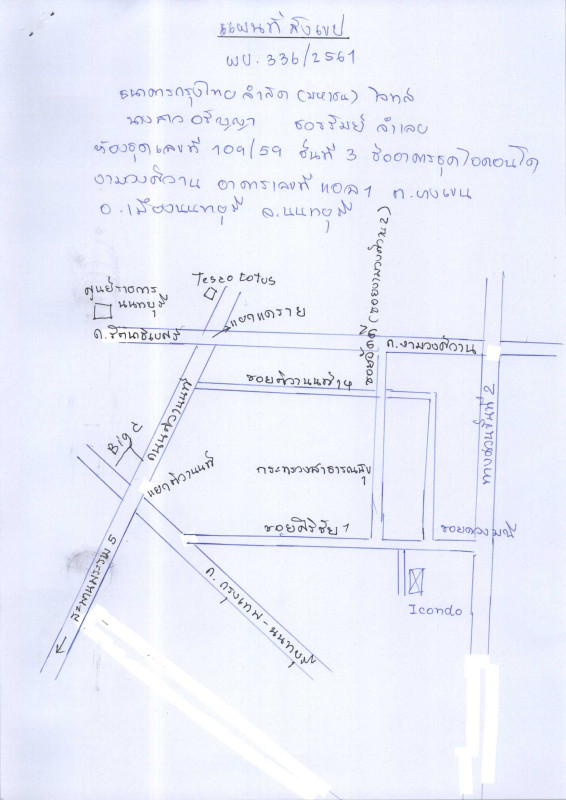 แผนที่สังเขป
ผบ. 336/2561
ธนาคารกรุงไทย จำกัด (มหาชน) โจทก์
นางสาว อริญญา จำเลย
ห้องชุดเลขที่ 109/59 ชั้นที่ 3 ชื่ออาคารชุดไอคอนโด
งามวงศ์วาน อาคารเลขที่ แอล1 ต.บางเขน
อ.เมืองนนทบุรี จ.นนทบุรี
Tesco Lotus
ศูนย์ราชการ
นนทบุรี
แยกแคราย
ถ.รัตนาธิเบศร์
ถ.งามวงศ์วาน
ซอยติวานนท์ 14
ถนนติวานนท์
ทางด่วนขั้นที่ 2
Big C
แยกติวานนท์
กระทรวงสาธารณสุข
ซอยศิริชัย 1
ซอยดวงมณี
สะพานพระราม 5
ถ.กรุงเทพ-นนทบุรี
Icondo